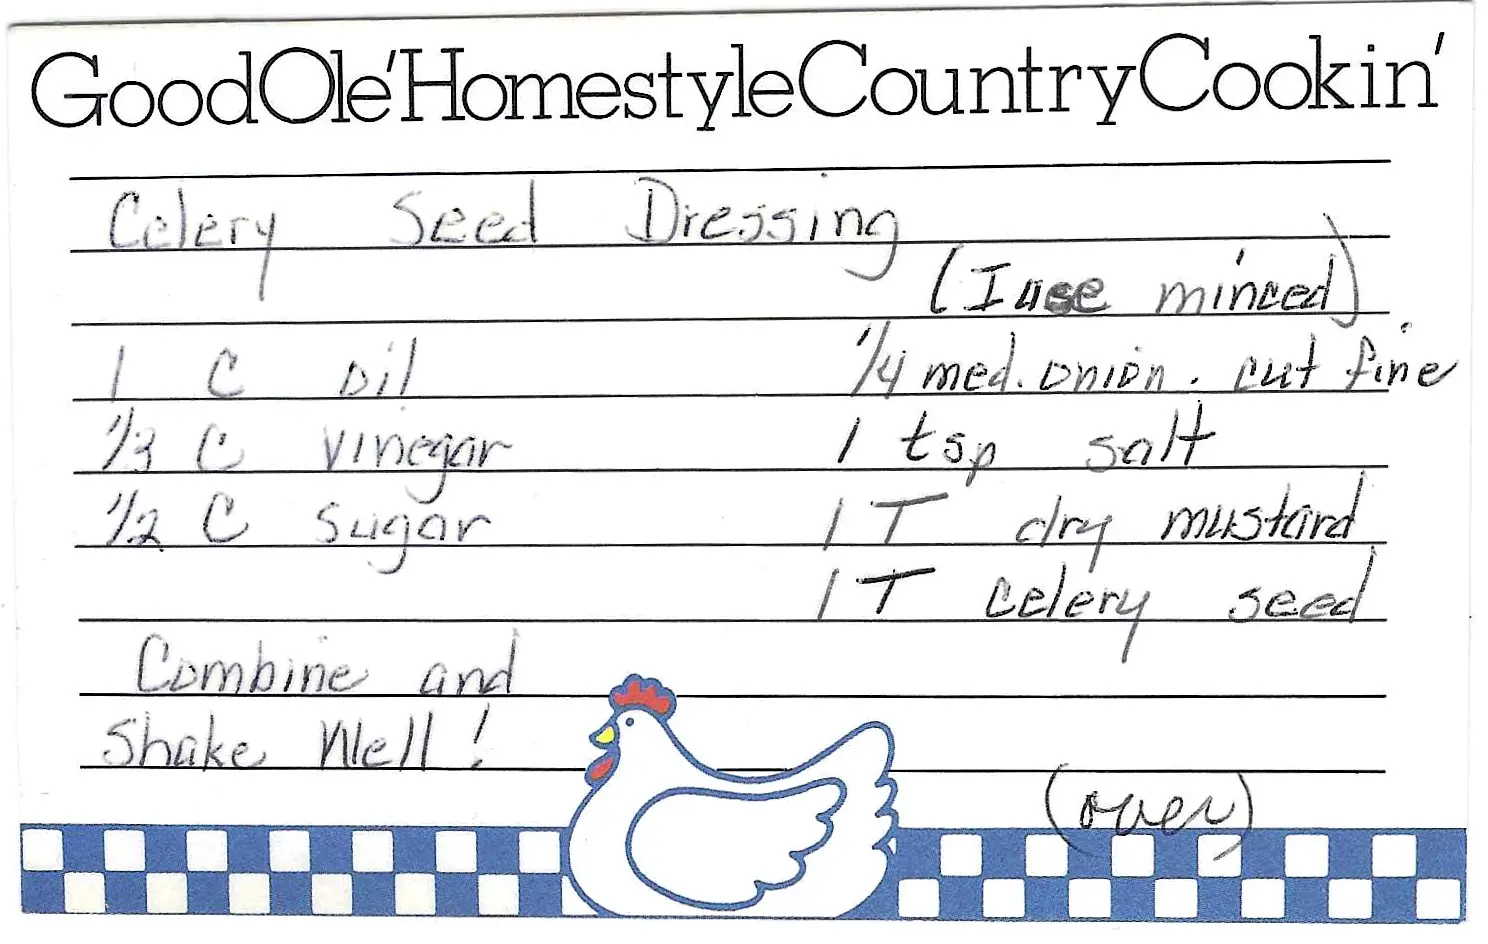 Good Ole' Homestyle Country Cookin'
Celery Seed Dressing
(I use minced)
1 C oil 1/4 med. onion. cut fine
1/3 C vinegar 1 tsp salt
1/2 C sugar 1 T dry mustard
1 T celery seed
Combine and
Shake Well!
(over)